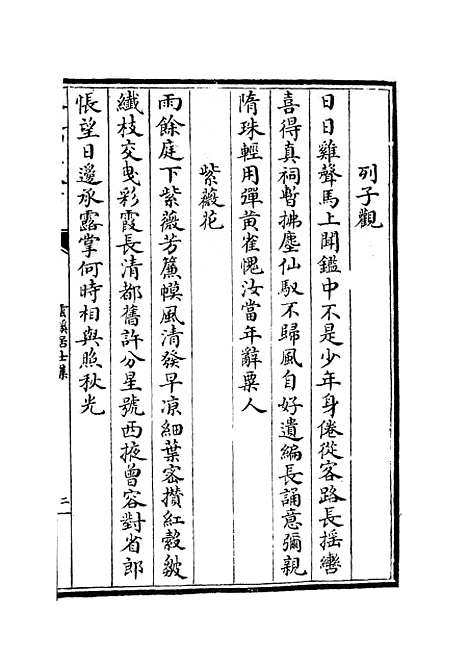 列子觀
日日雞聲馬上聞鑑中不是少年身倦從客路長揺轡
喜得真祠暫拂塵仙馭不歸風自好遺編長誦意彌親
隋珠輕用彈黄雀愧汝當年辭粟人
紫薇花
雨餘庭下紫薇芳簾幙風清發早凉細葉宻攢紅縠皺
纖枝交曳彩霞長清都舊許分星號西掖曾容對省郎
悵望日邊承露掌何時相與照秋光
雲溪居士集